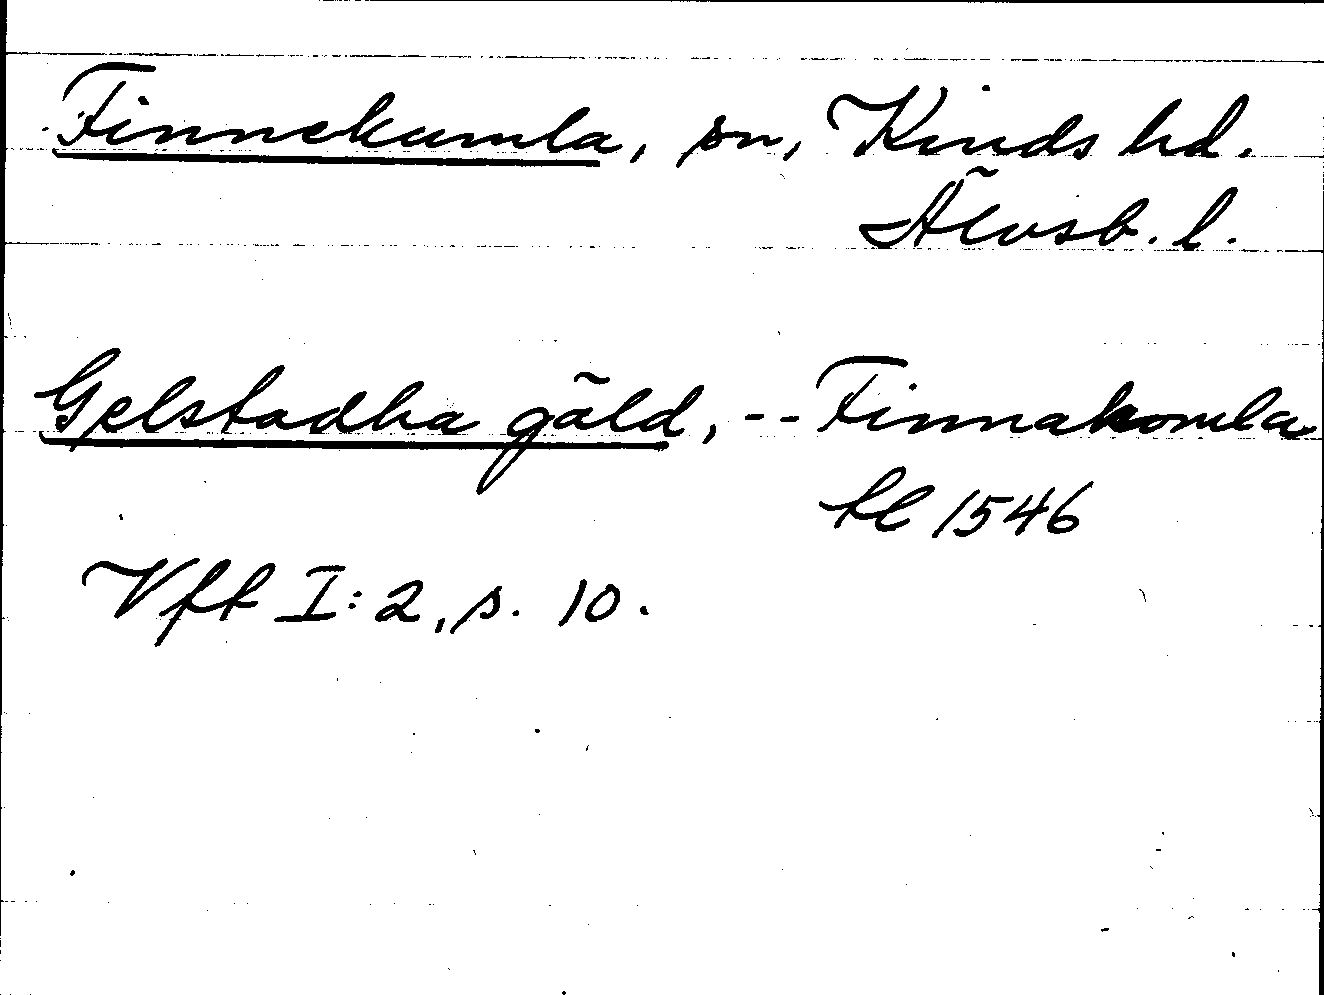 Finnekumla, sn, Kinds hd.
Älvsb. l.
Gelstadha gäld, -- Finnakomla
tl 1546
Vfft I:2, s. 10.